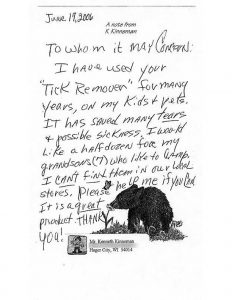 June 19, 2006
A note from
K. Kinneman
To whom it may Concern:
I have used your
"Tick Remover" for many
years, on my kids & pets.
IT HAS saved many Tears
& possible sickness, I would
Like a half dozen for my
grandsons (7) who like to Camp.
I CAN'T find them in our local
stores. Please help me if you can
It is a great
product. THANK
YOU!
Mr. Kenneth Kinneman
Hager City, WI 54014